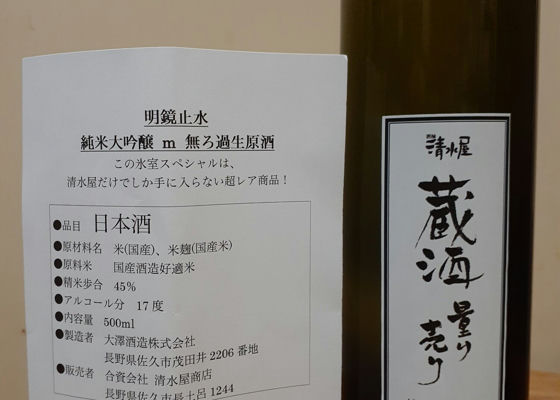 明鏡止水
純米大吟醸 m 無ろ過生原酒
この氷室スペシャルは、
清水屋だけでしか手に入らない超レア商品！
●品目 日本酒
●原材料名 米(国産)、米麹(国産米)
●原料米 国産酒造好適米
●精米歩合 45%
●アルコール分 17度
●内容量 500ml
●製造者 大澤酒造株式会社
長野県佐久市茂田井2206番地
●販売者 合資会社 清水屋商店
長野県佐久市長土呂1244
清水屋
蔵酒
量り
売り